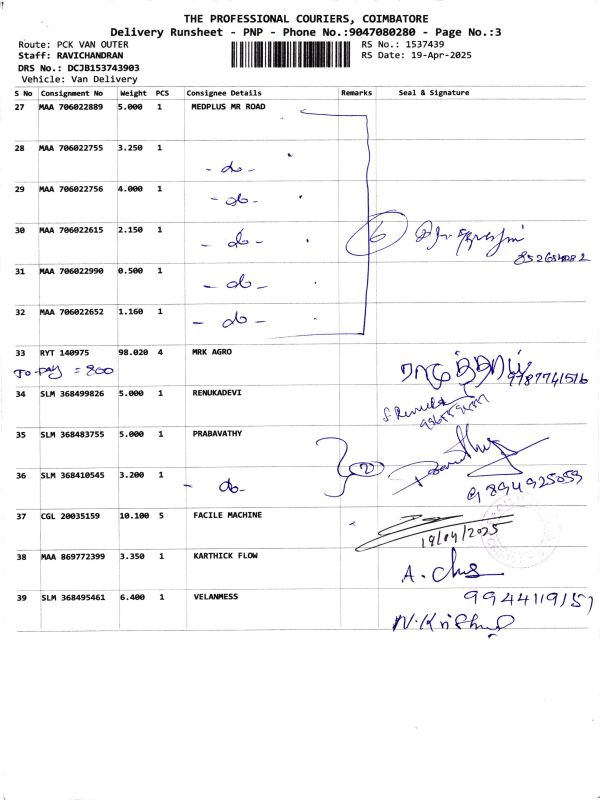 THE PROFESSIONAL COURIERS, COIMBATORE
Delivery Runsheet - PNP - Phone No.:9047080280 - Page No.:3
Route: PCK VAN OUTER
RS No.: 1537439
Staff: RAVICHANDRAN
RS Date: 19-Apr-2025
DRS No.: DCJB153743903
Vehicle: Van Delivery
S No Consignment No Weight PCS Consignee Details Remarks Seal & Signature
27 MAA 706022889 5.000 1 MEDPLUS MR ROAD
28 MAA 706022755 3.250 1 - do -
29 MAA 706022756 4.000 1 - do -
30 MAA 706022615 2.150 1 - do - 6
31 MAA 706022990 0.500 1 - do -
32 MAA 706022652 1.160 1 - do -
33 RYT 140975 98.020 4 MRK AGRO
To-pay = 800
9787741516
34 SLM 368499826 5.000 1 RENUKADEVI
35 SLM 368483755 5.000 1 PRABAVATHY
2
36 SLM 368410545 3.200 1 - do -
9894925059
37 CGL 20035159 10.100 5 FACILE MACHINE
19/04/2025
38 MAA 869772399 3.350 1 KARTHICK FLOW
A.
39 SLM 368495461 6.400 1 VELANMESS
9944119157